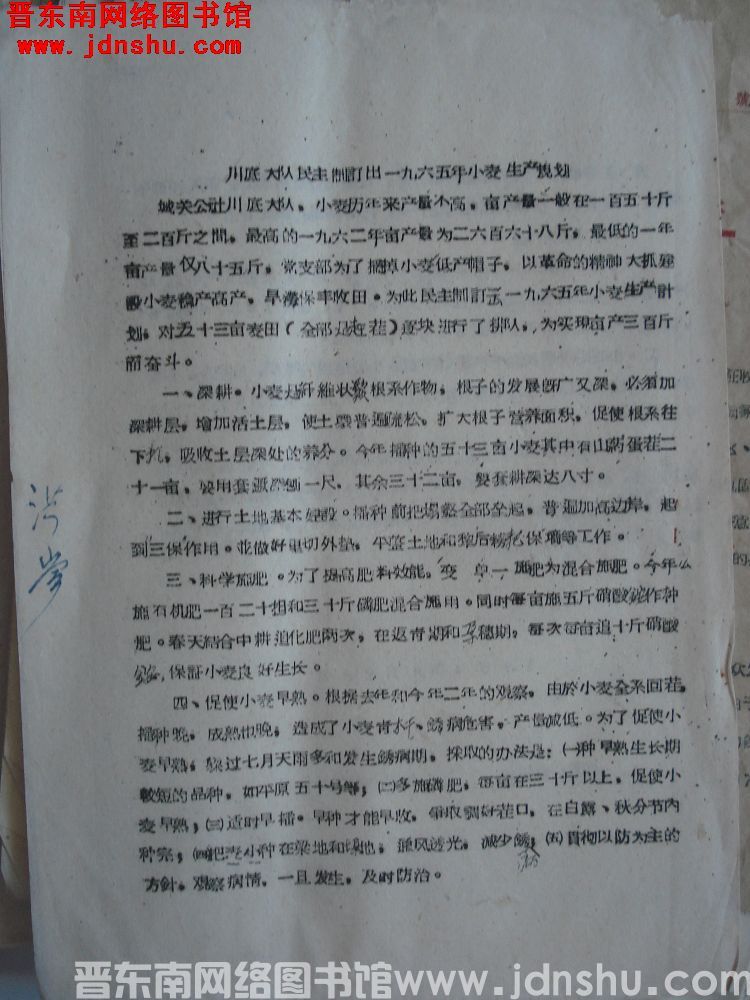 晋东南网络图书馆
www.jdnshu.com
川底大队民主制訂出一九六五年小麦生产規划
城关公社川底大队，小麦历年来产量不高，亩产量一般在一百五十斤
至二百斤之間，最高的一九六二年亩产量为二六百六十八斤，最低的一年
亩产量仅八十五斤，党支部为了摘掉小麦低产帽子，以革命的精神大抓建
設小麦稳产高产，旱涝保丰收田。为此民主制訂一九六五年小麦生产計
划，对五十三亩麦田（全部是茬）逐块进行了排队，为实現亩产三百斤
而奋斗。
一、深耕。小麦是纤維状根系作物，根子的发展旣广又深，必須加
深耕层，增加活土层，使土壤普遍疏松，扩大根子营养面积，促使根系往
下扎，吸收土层深处的养分。今年播种的五十三亩小麦其中有山药蛋茬二
十一亩，要用套一尺，其余三十二亩，要套耕深达八寸。
二、进行土地基本建設。播种前把塌全部垒起，普遍加高边岸，起
到三保作用。並做好里切外垫，平整土地和犁后耙保墒等工作。
三、科学施肥。为了提高肥料效能，变单一施肥为混合施肥。今年
施有机肥一百二十担和三十斤磷肥混合施用。同时每亩施五斤硝酸銨作种
肥。春天結合中耕追化肥两次，在返青期和穗期，每次每亩追十斤硝酸
銨，保証小麦良好生长。
四、促使小麦早熟。根据去年和今年二年的观察，由於小麦全系回茬，
播种晚，成熟也晚，造成了小麦青干、銹病危害，产量减低。为了促使小
麦早熟，躲过七月天雨多和发生銹病期，採取的办法是：㈠种早熟生长期
較短的品种，如平原五十号等；㈡多施磷肥，每亩在三十斤以上，促使小
麦早熟；㈢适时早播。早种才能早收，爭取調好茬口，在白露、秋分节内
种完；㈣把小麦种在梁地和地，通风透光，减少銹病；㈤貫彻以防为主的
方針，观察病情，一旦发生，及时防治。
晋东南网络图书馆www.jdnshu.com